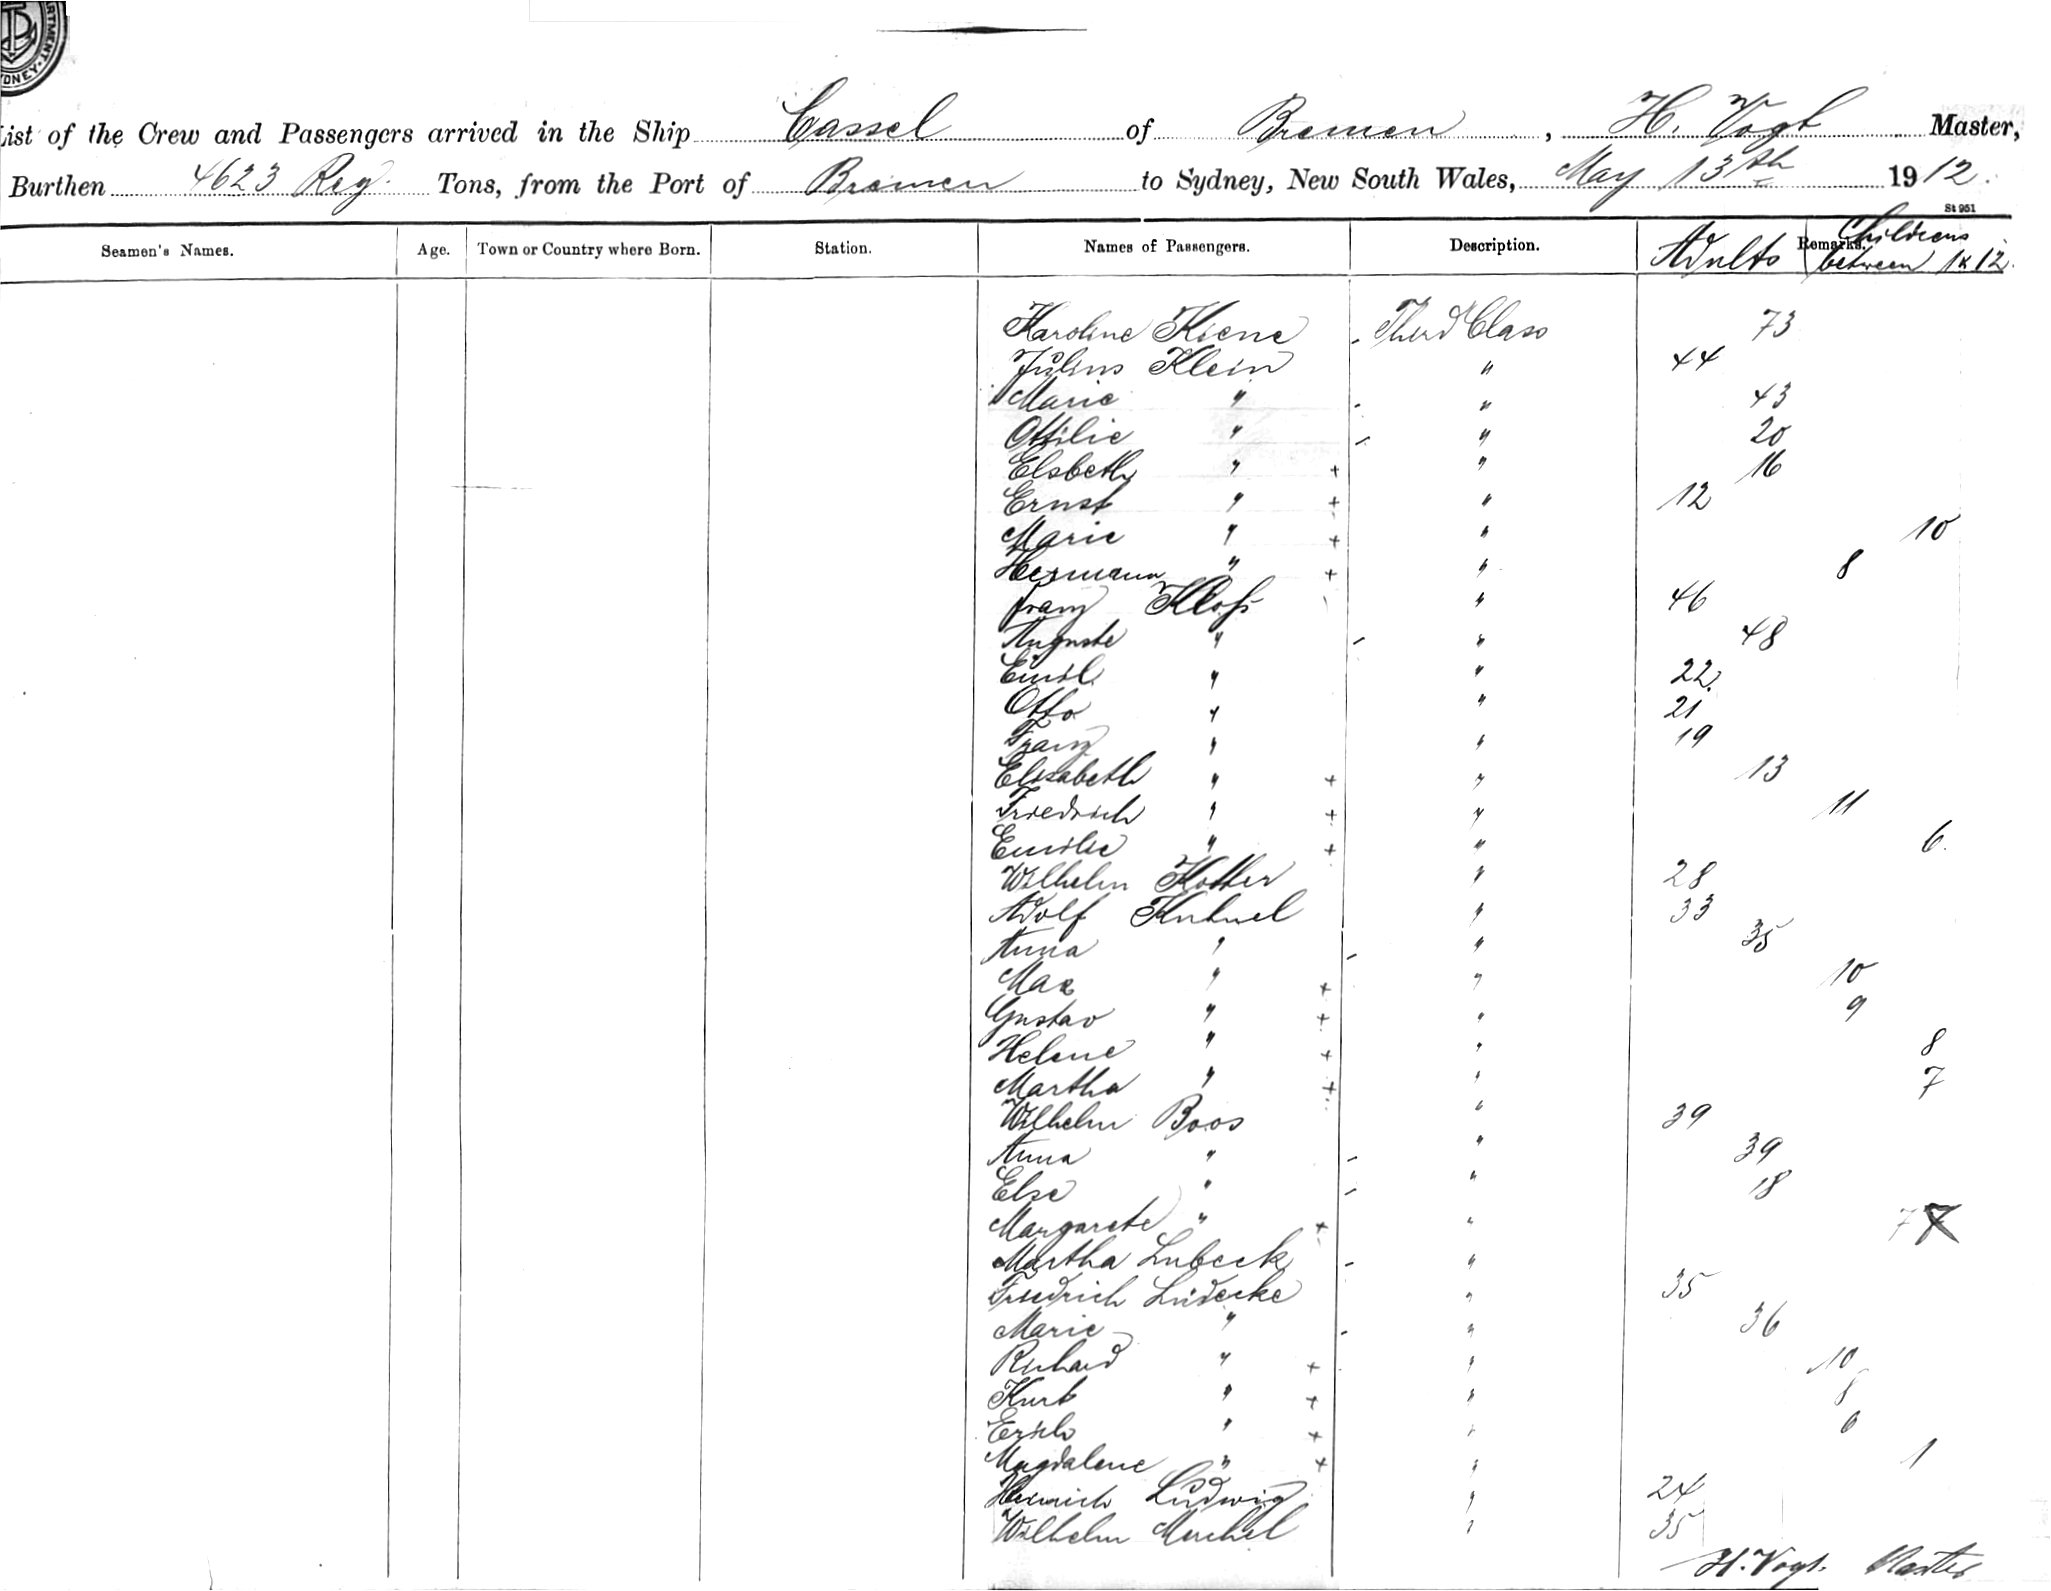 RTMENT.
DNEY.
List of the Crew and Passengers arrived in the Ship Cassel of Bremen, H. Vogt Master,
Burthen 4623 Reg. Tons, from the Port of Bremen to Sydney, New South Wales, May 13th 1912.
St 951
Seamen's Names. Age. Town or Country where Born. Station. Names of Passengers. Description. Adults Remarks. Childrens between 1 & 12.
Karoline Kiene Third Class 73
Julius Klein " 44
Marie " " 43
Ottilie " " 20
Elsbeth " + " 16
Ernst " + " 12
Marie " + " 10
Hermann " + " 8
Franz Kloß " 46
Auguste " " 48
Emil " " 22.
Otto " " 21
Franz " " 19
Elisabeth " + " 13
Friedrich " + " 11
Emilie " + " 6.
Wilhelm " 28
Adolf " 33
Anna " " 35
Max " + " 10
Gustav " + " 9
Helene " + " 8
Martha " + " 7
Wilhelm Boos " 39
Anna " " 39
Else " " 18
Margarete " + " 7
Martha Lubeck "
Friedrich Lüdecke " 35
Marie " " 36
Richard " + " 10
Kurt " + " 8
Erich " + " 6
Magdalene " + " 1
Heinrich Ludwig " 24
Wilhelm " 35
H. Vogt. Master